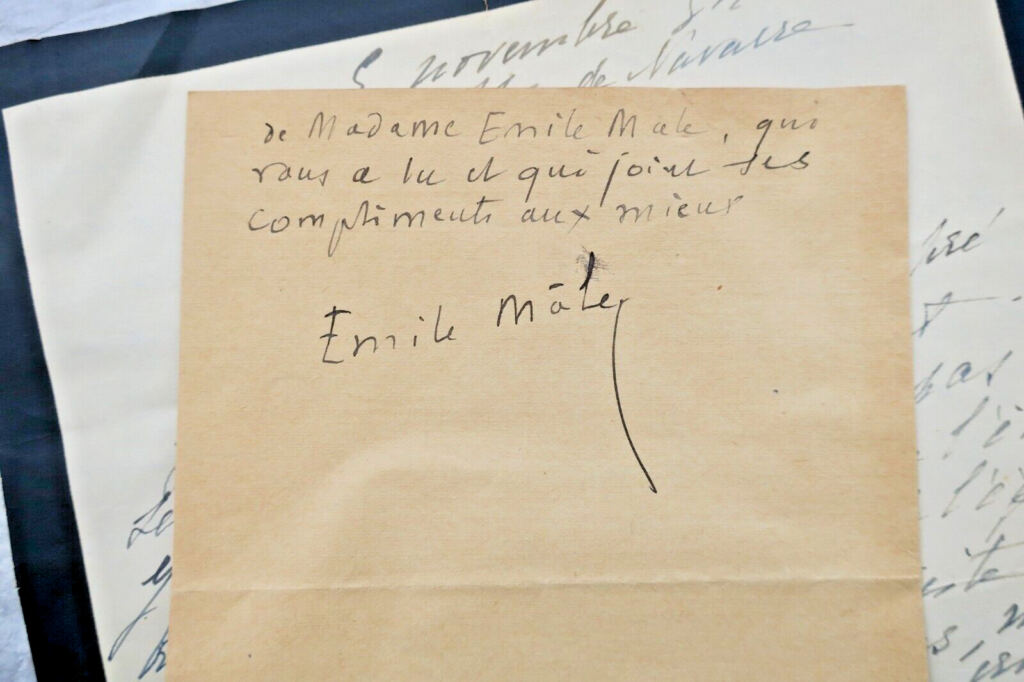 5 novembre
de Navarre
de Madame Emile Male, qui
vous a lu et qui joint ses
compliments aux miens
Emile Mâle
pas